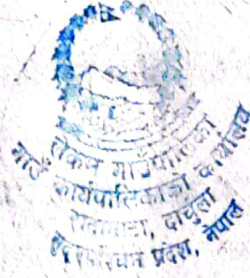 गाउँपालिका
गाउँ कार्यपालिकाको कार्यालय
दार्चुला
सुदूरपश्चिम प्रदेश, नेपाल